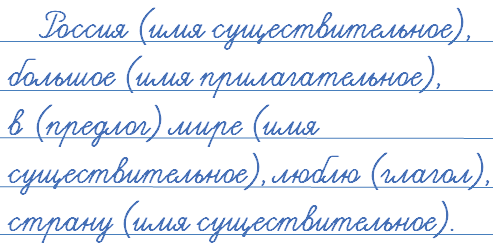 Россия (имя существительное),
большое (имя прилагательное),
в (предлог) мире (имя
существительное), люблю (глагол),
страну (имя существительное).